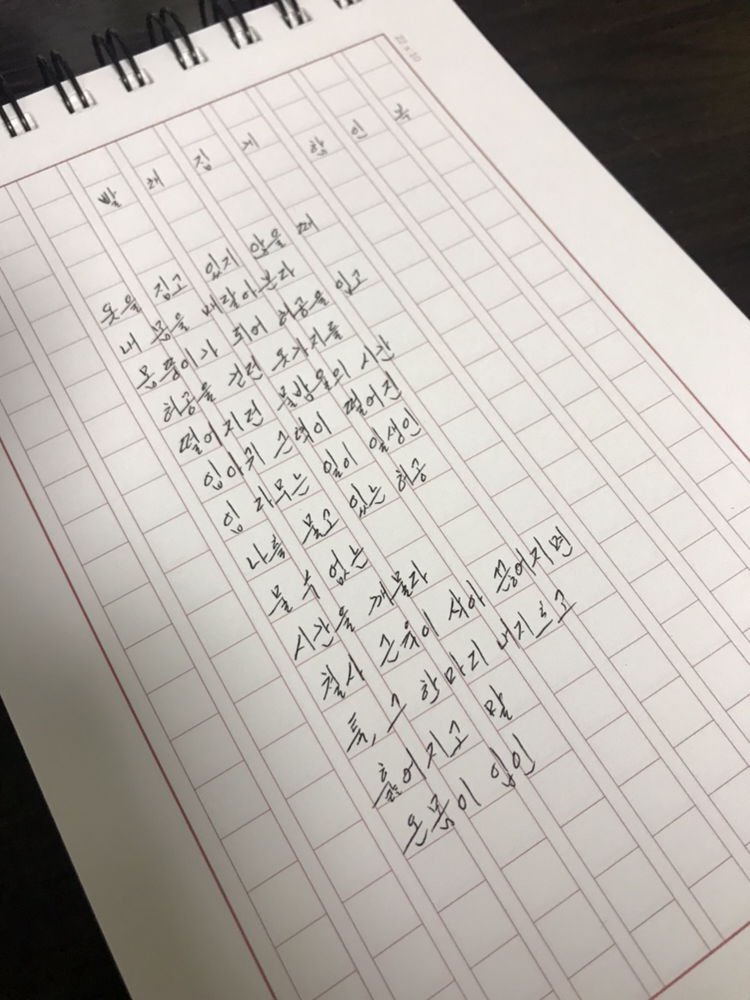 22×10
빨래집게 함민복
옷을 집고 있지 않을 때
내 몸을 매달아본다
몸뚱이가 되어 허공을 입고
허공을 걷던 옷가지들
떨어지던 물방울의 시간
입아귀 근력이 떨어진
입 다무는 일이 일생인
나를 물고 있는 허공
물 수 없는
시간을 깨물다
철사 근육이 삭아 끊어지면
툭, 그 한마디 내지르고
흩어지고 말
온몸이 입인